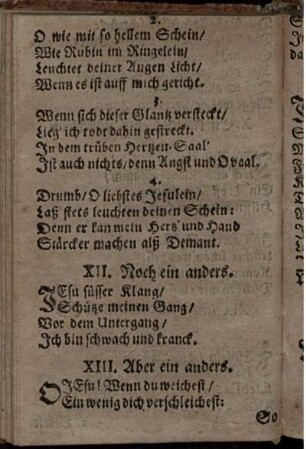 2.
O wie mit so hellem Schein/
Wie Rubin im Ringelein/
Leuchtet deiner Augen Licht/
Wenn es ist auff mich gericht.
3.
Wenn sich dieser Glantz versteckt/
Lieg' ich todt dahin gestreckt.
In dem trüben Hertzen-Saal'
Ist auch nichts/ denn Angst und Qvaal.
4.
Drumb/ O liebstes Jesulein/
Laß stets leuchten deinen Schein:
Denn er kan mein Hertz' und Hand
Stärcker machen alß Demant.
XII. Noch ein anders.
JEsu süsser Klang/
Schütze meinen Gang/
Vor dem Untergang/
Ich bin schwach und kranck.
XIII. Aber ein anders.
O JEsu! Wenn du weichest/
Ein wenig dich verschleichest:
So